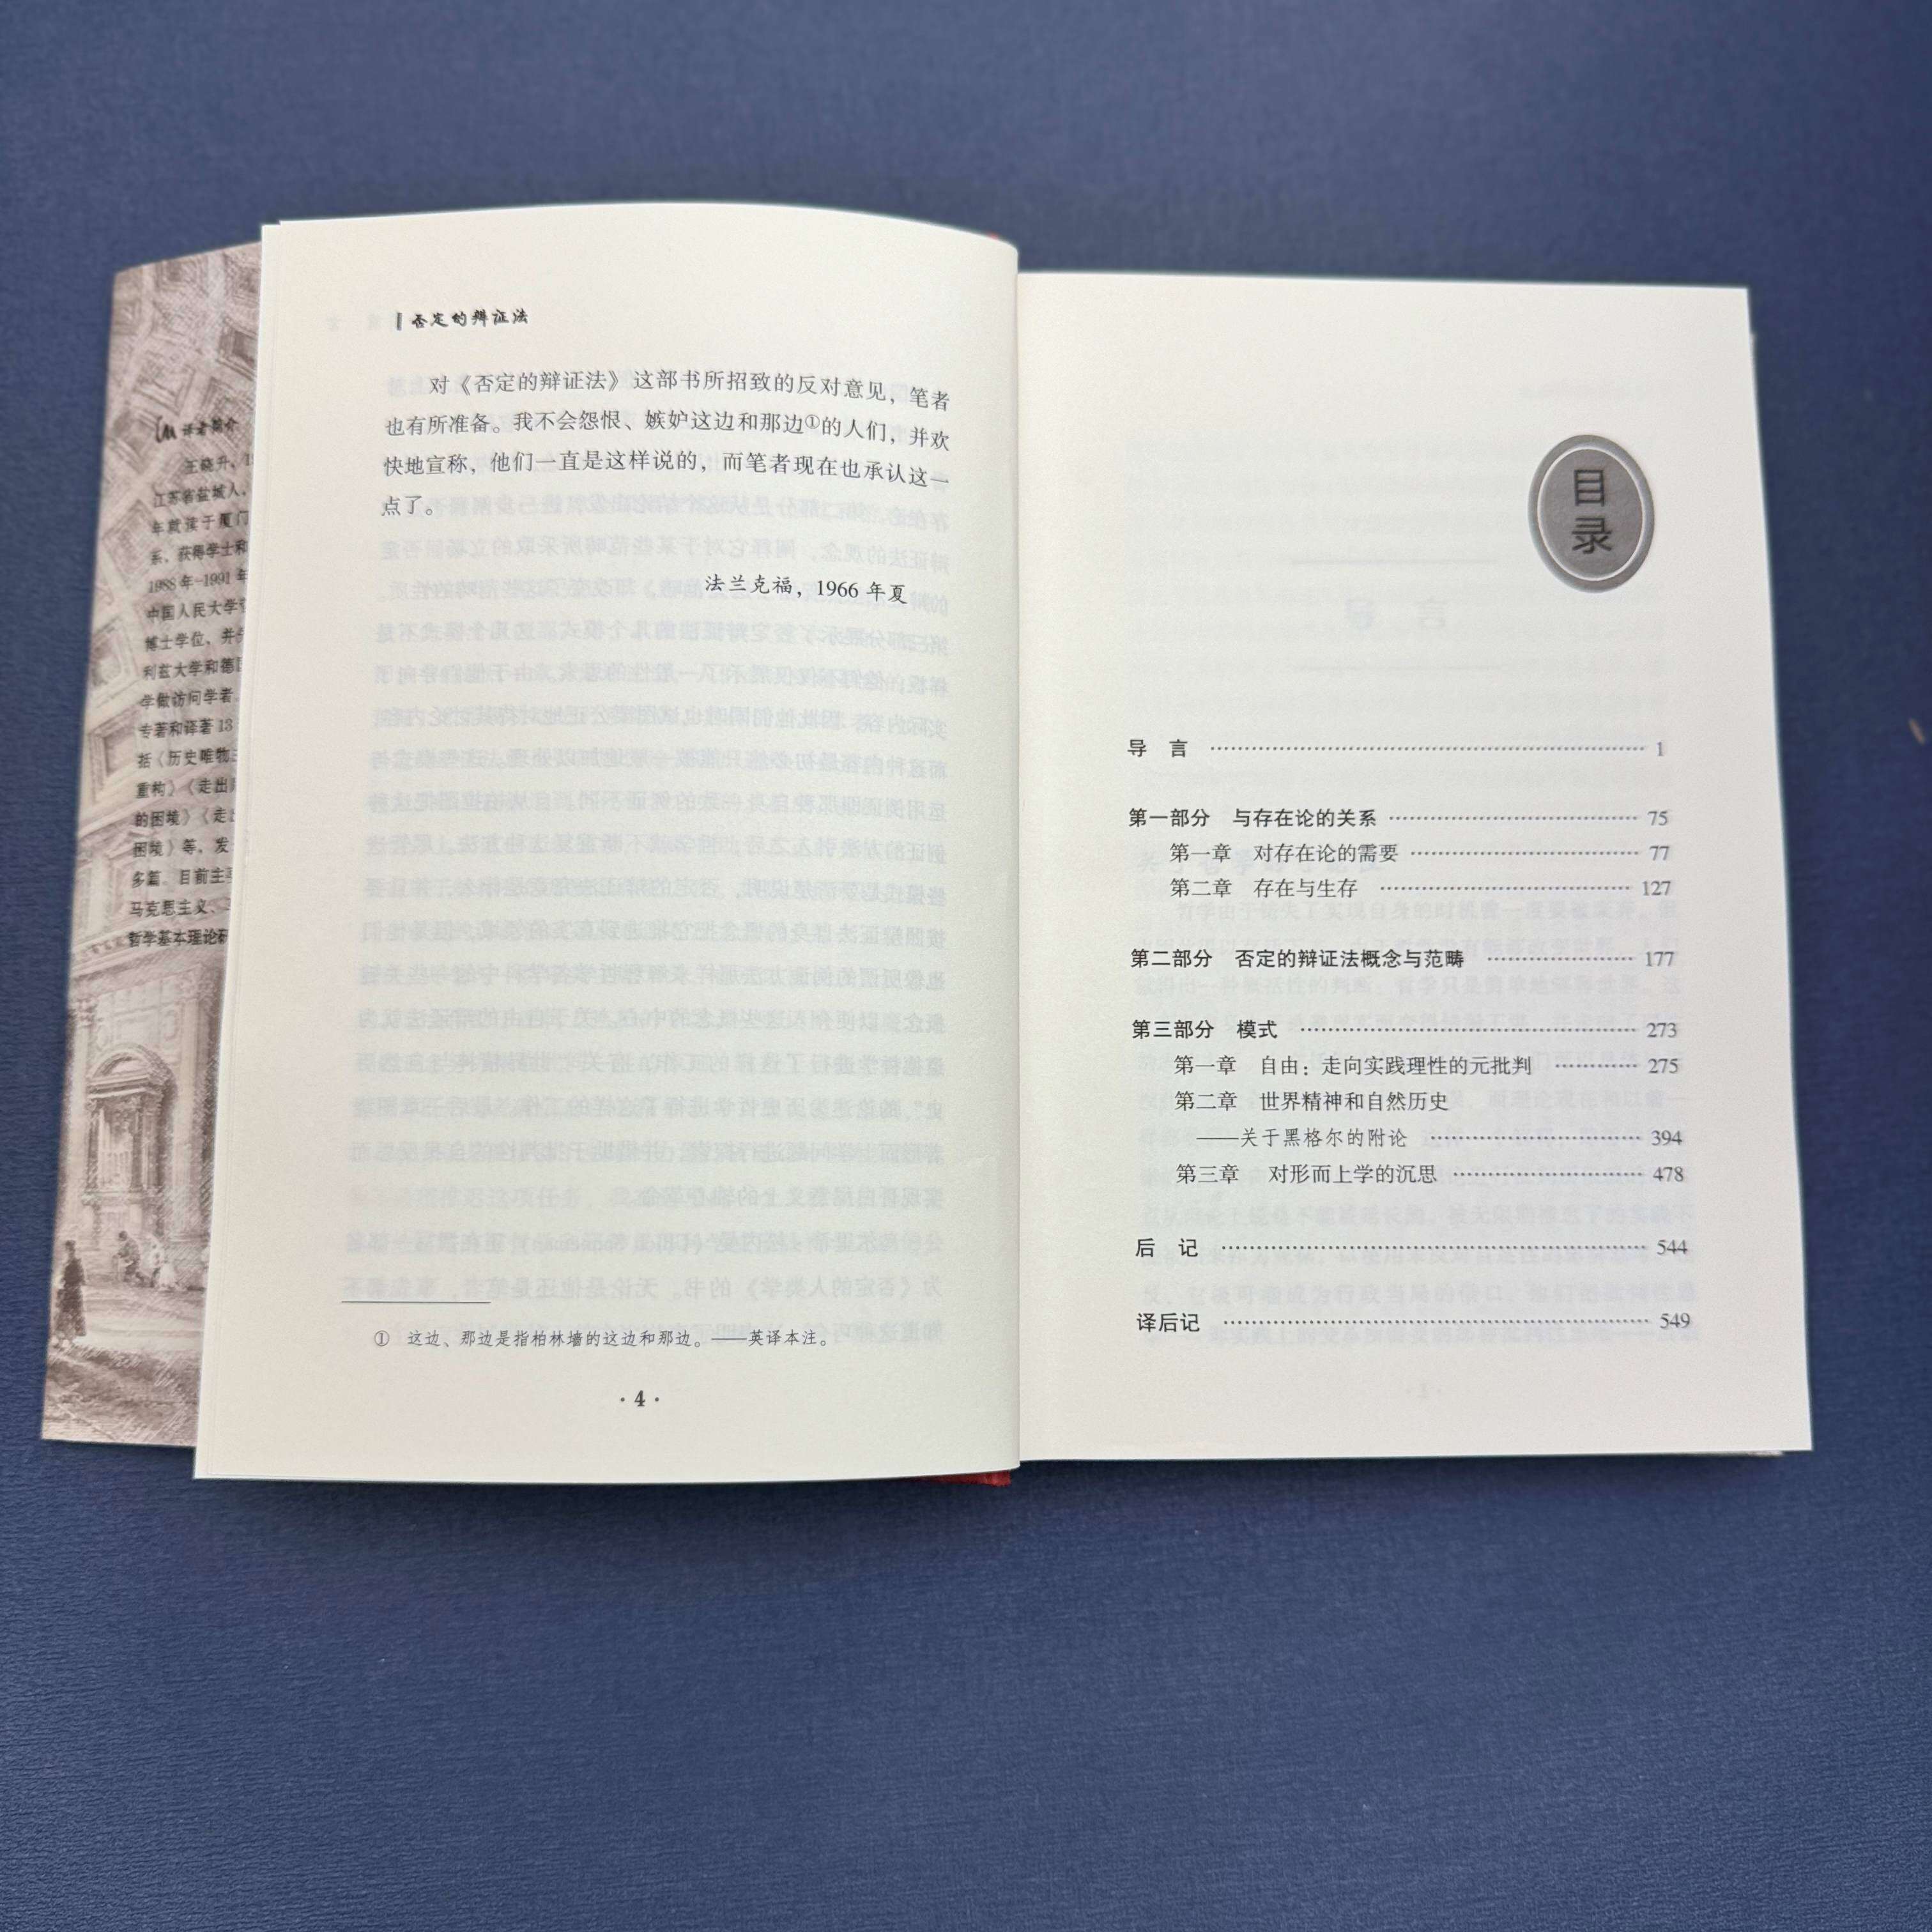 译者简介
王晓升，
江苏省盐城人，
年就读于厦门
系，获得学士和
1988年-1991年
中国人民大学
博士学位，并
利兹大学和德国
学做访问学者。
专著和译著13
括《历史唯物
重构》《走出
的困境》《走出
困境》等，发
多篇。目前主要
马克思主义、
哲学基本理论研
否定的辩证法
对《否定的辩证法》这部书所招致的反对意见，笔者
也有所准备。我不会怨恨、嫉妒这边和那边①的人们，并欢
快地宣称，他们一直是这样说的，而笔者现在也承认这一
点了。
法兰克福，1966年夏
① 这边、那边是指柏林墙的这边和那边。——英译本注。
·4·
目录
导 言 1
第一部分 与存在论的关系 75
第一章 对存在论的需要 77
第二章 存在与生存 127
第二部分 否定的辩证法概念与范畴 177
第三部分 模式 273
第一章 自由：走向实践理性的元批判 275
第二章 世界精神和自然历史
——关于黑格尔的附论 394
第三章 对形而上学的沉思 478
后 记 544
译后记 549